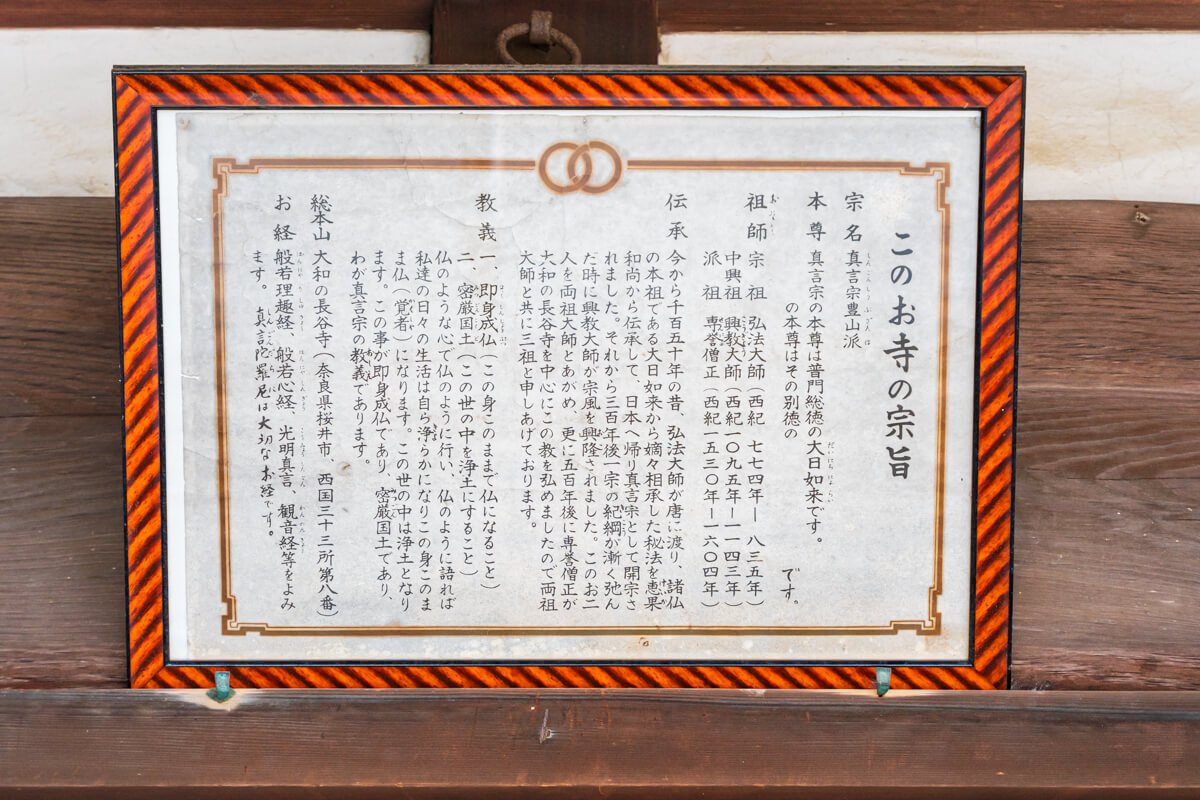 このお寺の宗旨
宗名 真言宗豊山派
本尊 真言宗の本尊は普門総徳の大日如来です。
の本尊はその別徳の です。
祖師 宗祖 弘法大師(西紀 七七四年―八三五年)
中興祖 興教大師(西紀一〇九五年―一一四三年)
派祖 専誉僧正(西紀一五三〇年―一六〇四年)
伝承 今から千百五十年の昔、弘法大師が唐に渡り、諸仏
の本祖である大日如来から嫡々相承した秘法を恵果
和尚から伝承して、日本へ帰り真言宗として開宗さ
れました。それから三百年後一宗の紀綱が漸く弛ん
だ時に興教大師が宗風を興隆されました。このお二
人を両祖大師とあがめ、更に五百年後に専誉僧正が
大和の長谷寺を中心にこの教を弘めましたので両祖
大師と共に三祖と申しあげております。
教義 一、即身成仏(この身このままで仏になること)
二、密厳国土(この世の中を浄土にすること)
仏のような心で仏のように行い、仏のように語れば
私達の日々の生活は自ら浄らかになりこの身このま
ま仏(覚者)になります。この世の中は浄土となり
ます。この事が即身成仏であり、密厳国土であり、
わが真言宗の教義であります。
総本山 大和の長谷寺(奈良県桜井市、西国三十三所第八番)
お経 般若理趣経、般若心経、光明真言、観音経等をよみ
ます。 真言陀羅尼は大切なお経です。